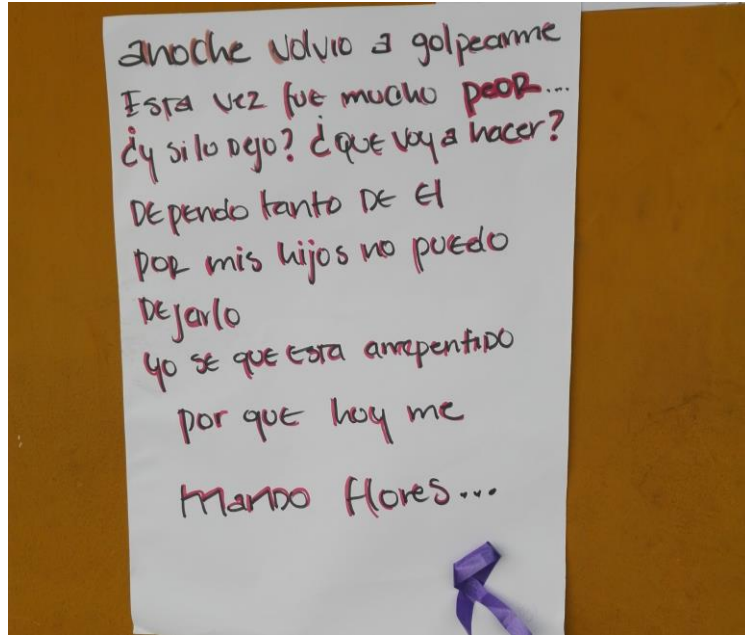 anoche volvio a golpearme
Esta vez fue mucho peor...
¿y si lo dejo? ¿que voy a hacer?
Dependo tanto de el
por mis hijos no puedo
Dejarlo
yo se que esta arrepentido
por que hoy me
mando flores...